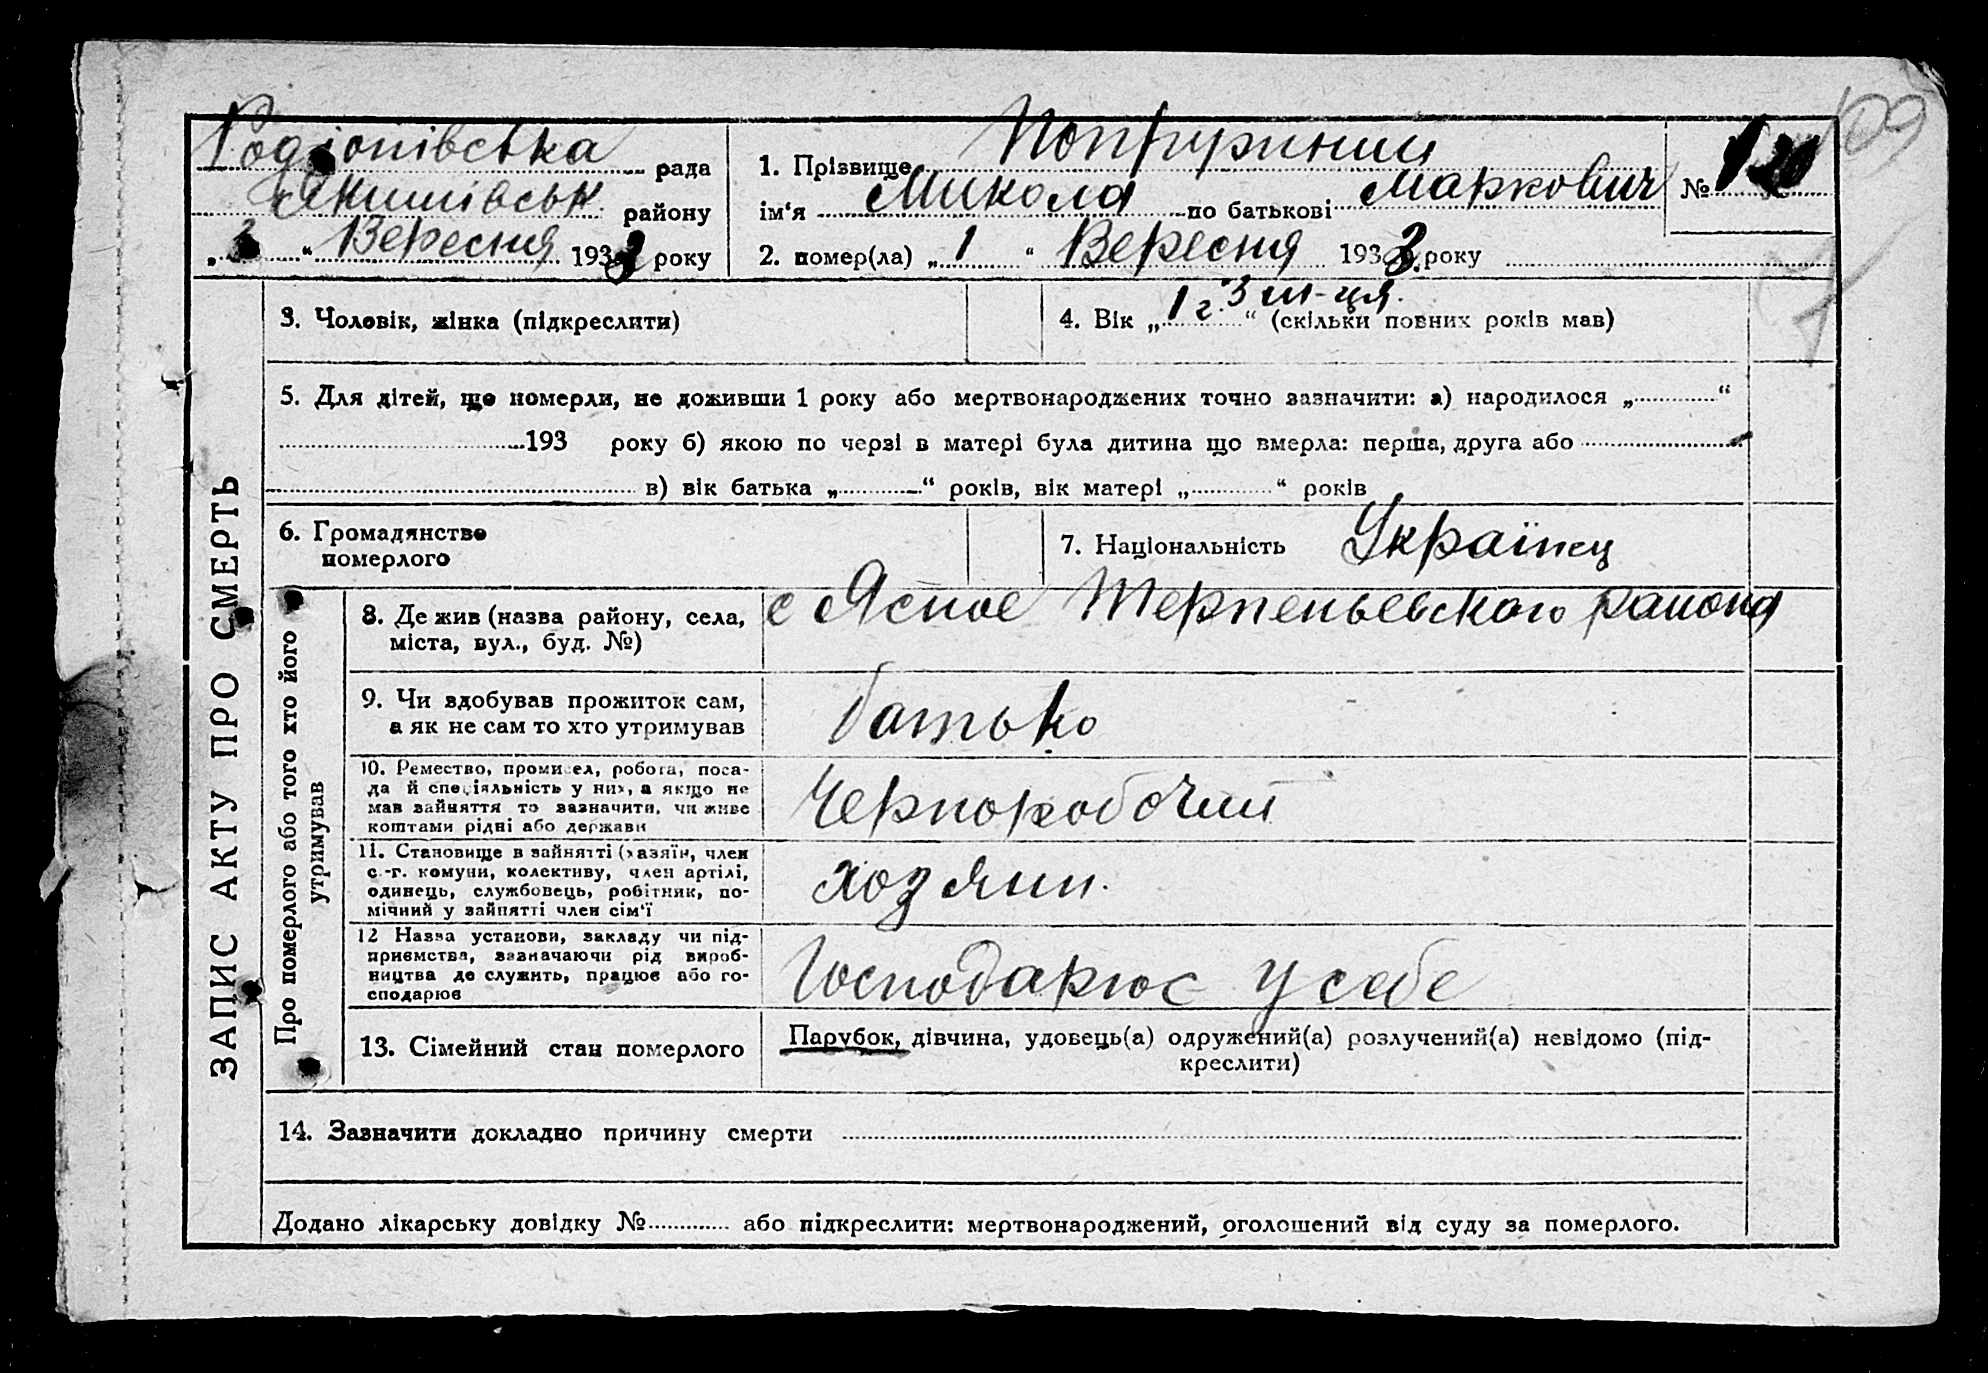 109
Родіонівська рада
Якимівськ району
„ 3 “ Вересня 1933 року
1. Прізвище
ім‘я Микола по батькові Маркович
№
2. помер(ла) „ 1 “ Вересня 1933 року
3. Чоловік, жінка (підкреслити)
4. Вік „ 1 г. 3 м-ця. “ (скільки повних років мав)
5. Для дітей, що померли, не доживши 1 року або мертвонароджених точно зазначити: а) народилося „ “
193 року б) якою по черзі в матері була дитина що вмерла: перша, друга або
в) вік батька „ “ років, вік матері „ “ років
6. Громадянство
померлого
7. Національність Українец
ЗАПИС АКТУ ПРО СМЕРТЬ
Про померлого або того хто його
утримував
8. Де жив (назва району, села,
міста, вул., буд. №)
с Ясное Терпеньевского района
9. Чи здобував прожиток сам,
а як не сам то хто утримував
батько
10. Ремество, промисел, робота, поса-
да й спеціяльність у них, а якщо не
мав зайняття то зазначити, чи живе
коштами рідні або держави
Черноробочий
11. Становище в зайнятті (хазяїн, член
с.-г. комуни, колективу, член артілі,
одинець, службовець, робітник, по-
мічний у зайнятті член сім‘ї
хозяин.
12 Назва установи, закладу чи під-
приємства, зазначаючи рід вироб-
ництва де служить, працює або го-
сподарює
Господарює у себе
13. Сімейний стан померлого
Парубок, дівчина, удовець(а) одружений(а) розлучений(а) невідомо (під-
креслити)
14. Зазначити докладно причину смерти
Додано лікарську довідку № або підкреслити: мертвонароджений, оголошений від суду за померлого.